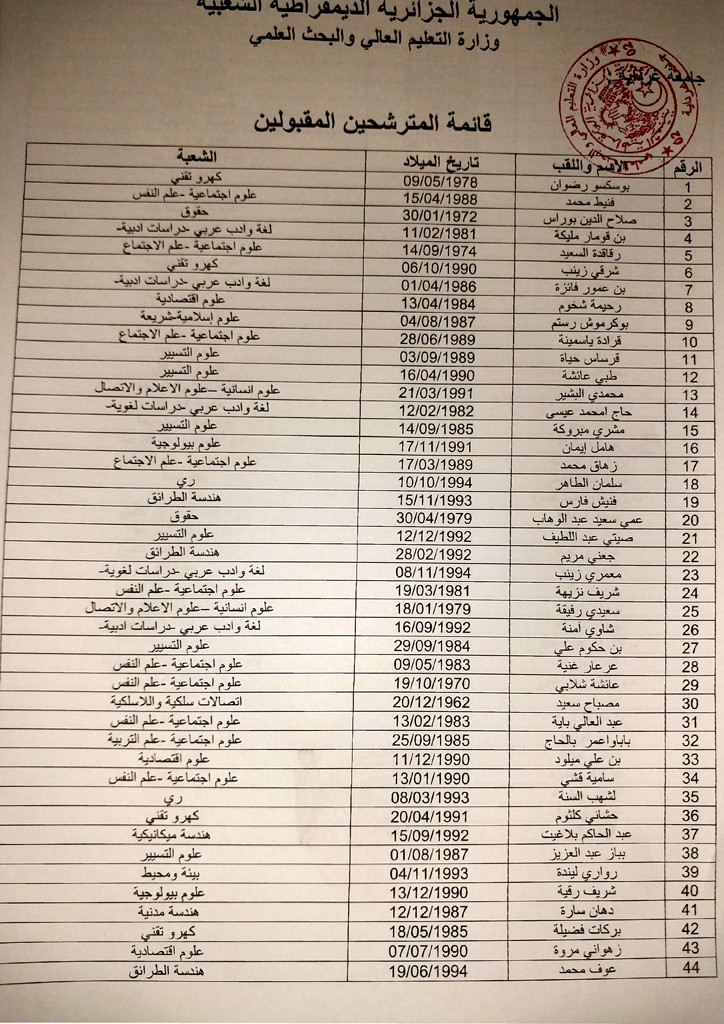 الجمهورية الجزائرية الديمقراطية الشعبية
وزارة التعليم العالي والبحث العلمي
جامعة غرداية
قائمة المترشحين المقبولين
الرقم الاسم واللقب تاريخ الميلاد الشعبة
1 بوسكسو رضوان 09/05/1978 كهرو تقني
2 فنيط محمد 15/04/1988 علوم اجتماعية -علم النفس
3 صلاح الدين بوراس 30/01/1972 حقوق
4 بن قومار مليكة 11/02/1981 لغة وادب عربي -دراسات ادبية-
5 رقاقدة السعيد 14/09/1974 علوم اجتماعية -علم الاجتماع
6 شرقي زينب 06/10/1990 كهرو تقني
7 بن عمور فائزة 01/04/1986 لغة وادب عربي -دراسات ادبية-
8 رحيمة شخوم 13/04/1984 علوم اقتصادية
9 بوكرموش رستم 04/08/1987 علوم إسلامية-شريعة
10 قرادة ياسمينة 28/06/1989 علوم اجتماعية -علم الاجتماع
11 قرساس حياة 03/09/1989 علوم التسيير
12 طبي عائشة 16/04/1990 علوم التسيير
13 محمدي البشير 21/03/1991 علوم انسانية –علوم الاعلام والاتصال
14 حاج امحمد عيسى 12/02/1982 لغة وادب عربي -دراسات لغوية-
15 مشري مبروكة 14/09/1985 علوم التسيير
16 هامل إيمان 17/11/1991 علوم بيولوجية
17 زهاق محمد 17/03/1989 علوم اجتماعية -علم الاجتماع
18 سلمان الطاهر 10/10/1994 ري
19 فنيش فارس 15/11/1993 هندسة الطرائق
20 عمي سعيد عبد الوهاب 30/04/1979 حقوق
21 صيتي عبد اللطيف 12/12/1992 علوم التسيير
22 جعني مريم 28/02/1992 هندسة الطرائق
23 معمري زينب 08/11/1994 لغة وادب عربي -دراسات لغوية-
24 شريف نزيهة 19/03/1981 علوم اجتماعية -علم النفس
25 سعيدي رفيقة 18/01/1979 علوم انسانية –علوم الاعلام والاتصال
26 شاوي آمنة 16/09/1992 لغة وادب عربي -دراسات ادبية-
27 بن حكوم علي 29/09/1984 علوم التسيير
28 عرعار غنية 09/05/1983 علوم اجتماعية -علم النفس
29 عائشة شلابي 19/10/1970 علوم اجتماعية -علم النفس
30 مصباح سعيد 20/12/1962 اتصالات سلكية واللاسلكية
31 عبد العالي باية 13/02/1983 علوم اجتماعية -علم النفس
32 باباواعمر بالحاج 25/09/1985 علوم اجتماعية -علم التربية
33 بن علي ميلود 11/12/1990 علوم اقتصادية
34 سامية قشي 13/01/1990 علوم اجتماعية -علم النفس
35 لشهب السنة 08/03/1993 ري
36 حشاني كلثوم 20/04/1991 كهرو تقني
37 عبد الحاكم بلاغيت 15/09/1992 هندسة ميكانيكية
38 بباز عبد العزيز 01/08/1987 علوم التسيير
39 رواري ليندة 04/11/1993 بيئة ومحيط
40 شريف رقية 13/12/1990 علوم بيولوجية
41 دهان سارة 12/12/1987 هندسة مدنية
42 بركات فضيلة 18/05/1985 كهرو تقني
43 زهواني مروة 07/07/1990 علوم اقتصادية
44 عوف محمد 19/06/1994 هندسة الطرائق